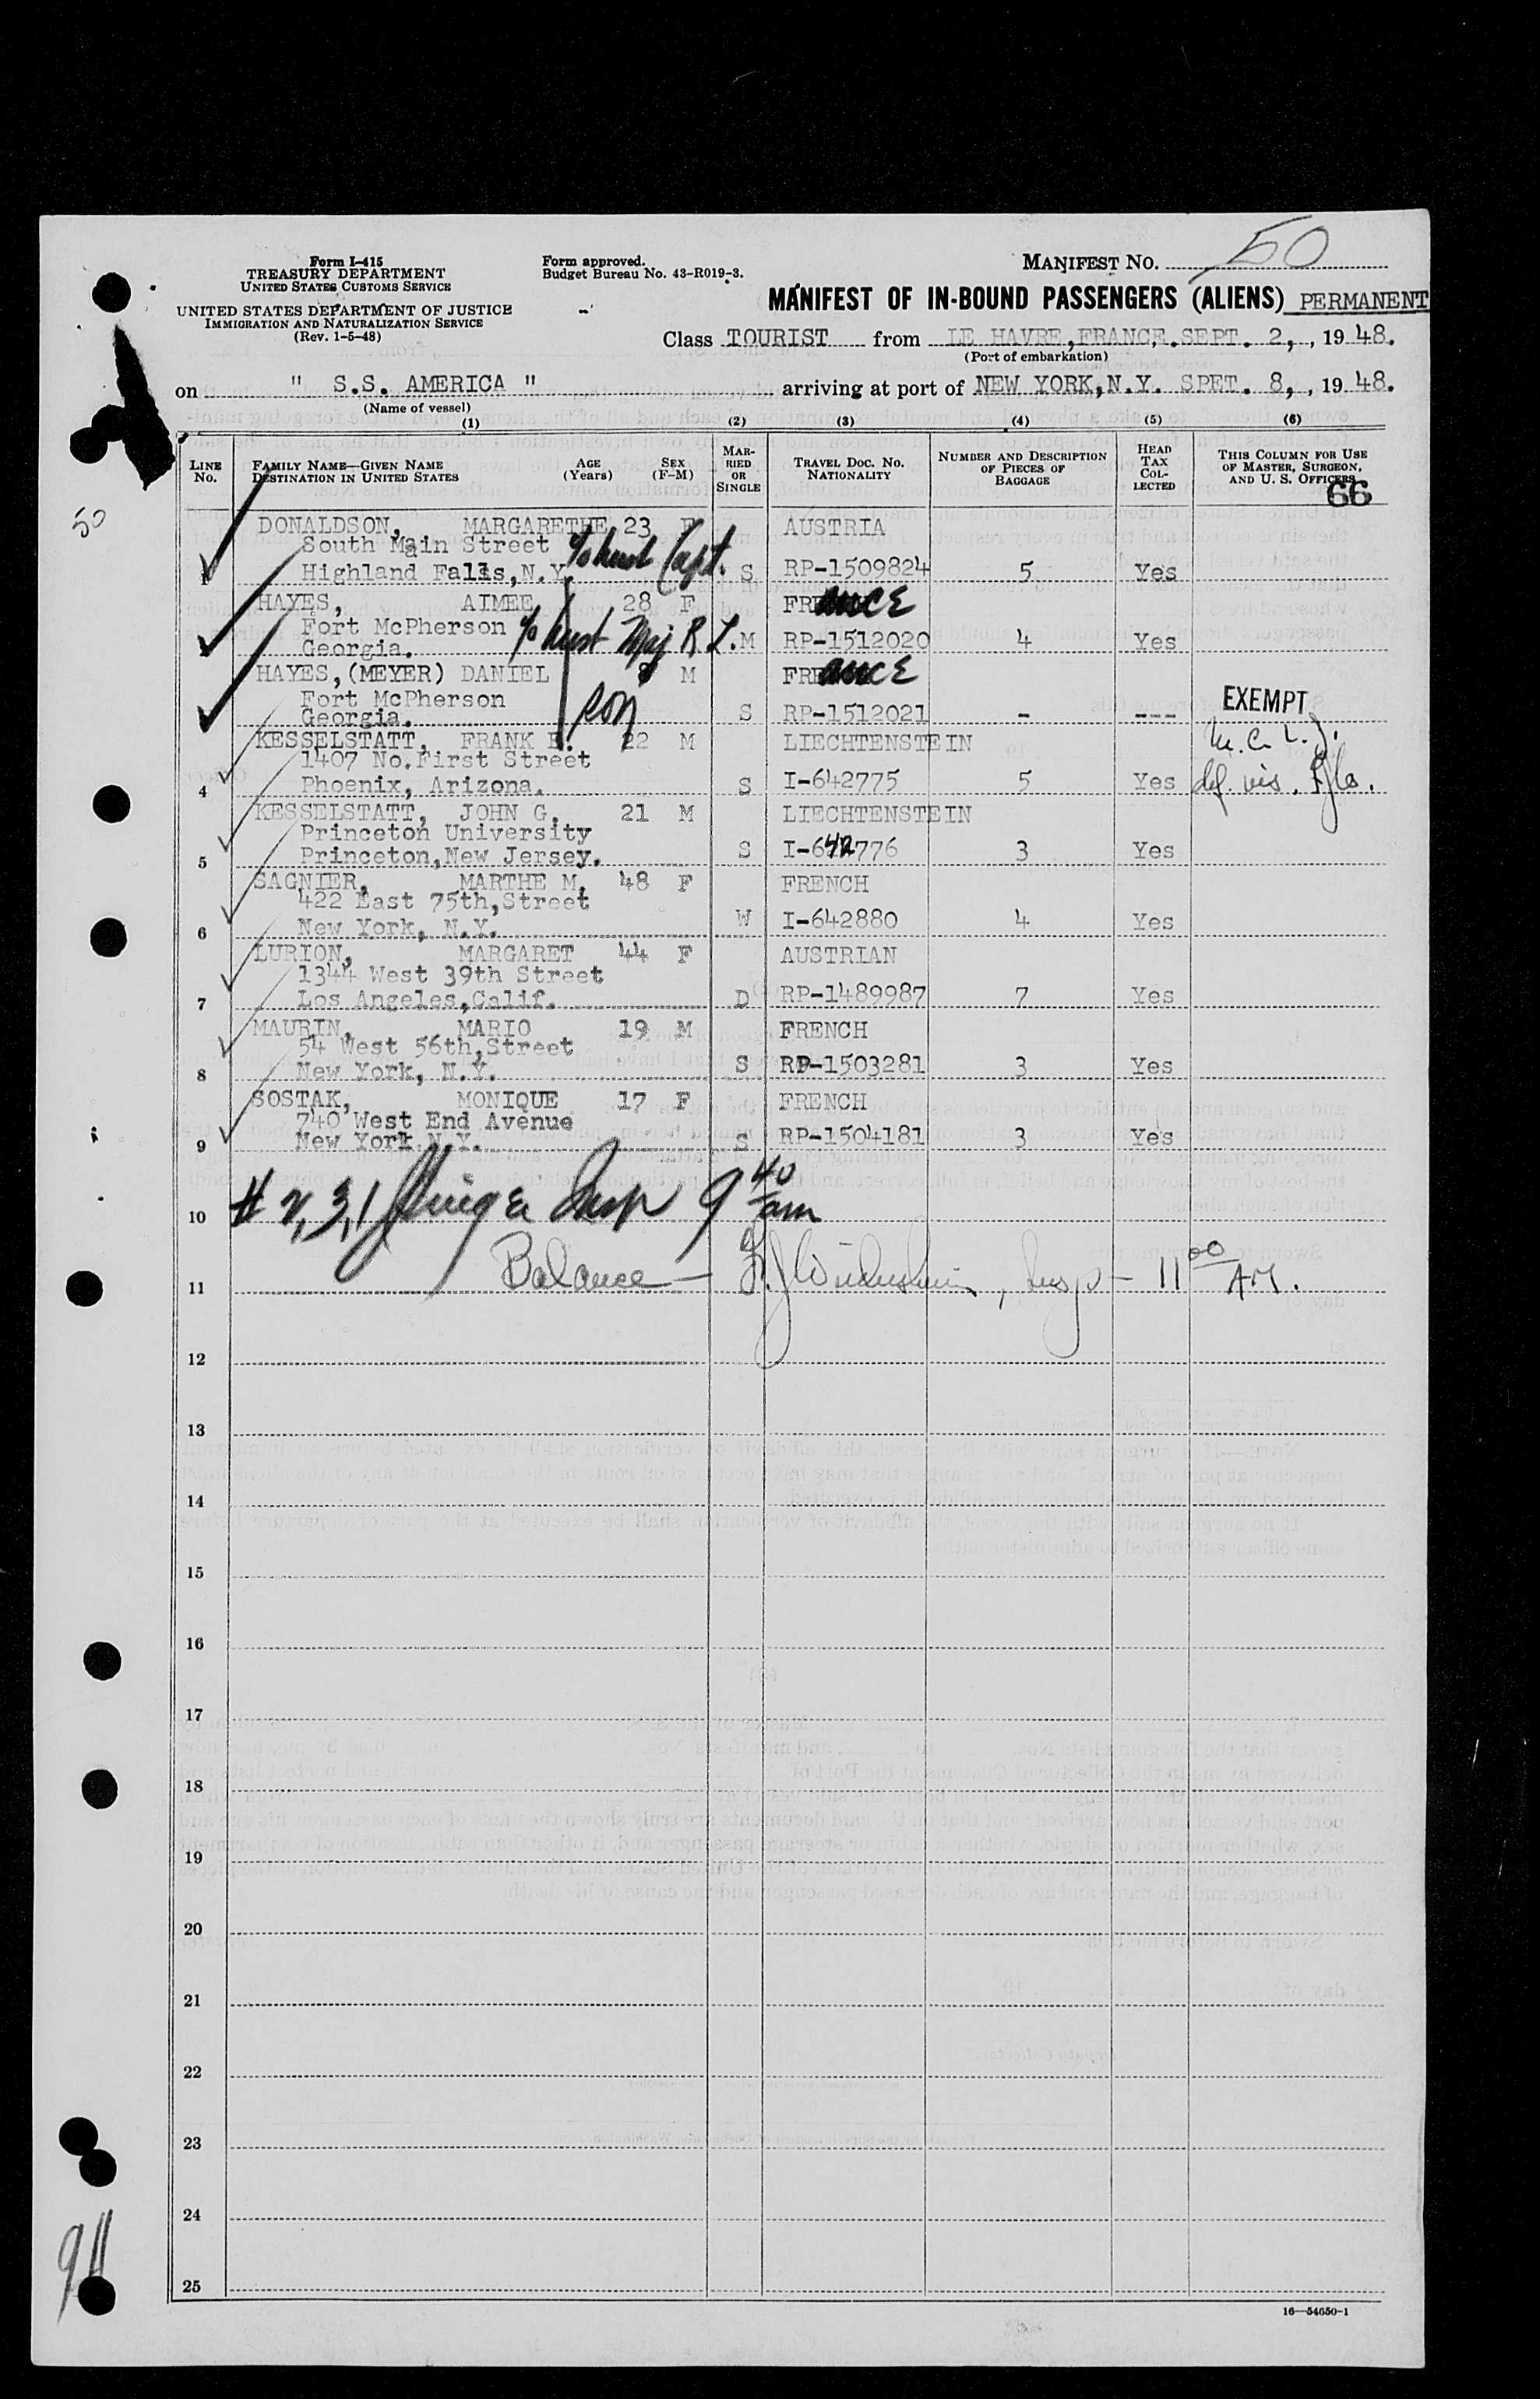 50
Form I-415
TREASURY DEPARTMENT
UNITED STATES CUSTOMS SERVICE
UNITED STATES DEPARTMENT OF JUSTICE
IMMIGRATION AND NATURALIZATION SERVICE
(Rev. 1-5-48)
Form approved.
Budget Bureau No. 43-R019-3.
MANIFEST No. 50
MANIFEST OF IN-BOUND PASSENGERS (ALIENS) PERMANENT
Class TOURIST from LE HAVRE, FRANCE. SEPT. 2, , 19 48.
(Port of embarkation)
on " S.S. AMERICA " arriving at port of NEW YORK, N.Y. SPET. 8, , 19 48.
(Name of vessel)
(1) (2) (3) (4) (5) (6)
LINE No.
FAMILY NAME—GIVEN NAME
DESTINATION IN UNITED STATES
AGE (Years)
SEX (F–M)
MARRIED OR SINGLE
TRAVEL DOC. NO.
NATIONALITY
NUMBER AND DESCRIPTION OF PIECES OF BAGGAGE
HEAD TAX COLLECTED
THIS COLUMN FOR USE OF MASTER, SURGEON, AND U. S. OFFICERS
66
DONALDSON, MARGARETHE 23 F AUSTRIA
South Main Street c/o husb Capt.
1 Highland Falls, N.Y. S RP-1509824 5 Yes
HAYES, AIMEE 28 F FRANCE
Fort McPherson c/o husb Maj R L.
Georgia. M RP-1512020 4 Yes
HAYES, (MEYER) DANIEL 8 M FRANCE
Fort McPherson son
Georgia. S RP-1512021 - --- EXEMPT
KESSELSTATT, FRANK E. 22 M LIECHTENSTEIN
1407 No. First Street
4 Phoenix, Arizona. S I-642775 5 Yes
KESSELSTATT, JOHN G. 21 M LIECHTENSTEIN
Princeton University
5 Princeton, New Jersey. S I-642776 3 Yes
SAGNIER, MARTHE M. 48 F FRENCH
422 East 75th, Street
6 New York, N.Y. W I-642880 4 Yes
LURION, MARGARET 44 F AUSTRIAN
1344 West 39th Street
7 Los Angeles, Calif. D RP-1489987 7 Yes
MAURIN, MARIO 19 M FRENCH
54 West 56th, Street
8 New York, N.Y. S RP-1503281 3 Yes
SOSTAK, MONIQUE 17 F FRENCH
740 West End Avenue
9 New York N.Y. S RP-1504181 3 Yes
10 # 2, 3, 1 Insp 9 40 am
11 Balance — Insp — 11 00 AM.
12
13
14
15
16
17
18
19
20
21
22
23
24
25
16—54650-1